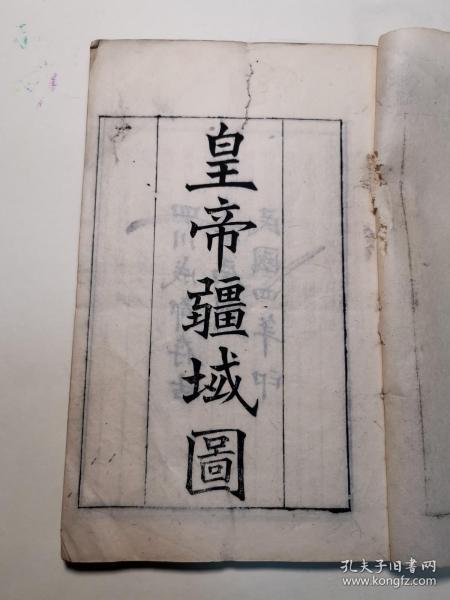 皇帝疆域圖
民國四年印
孔夫子旧书网
www.kongfz.com